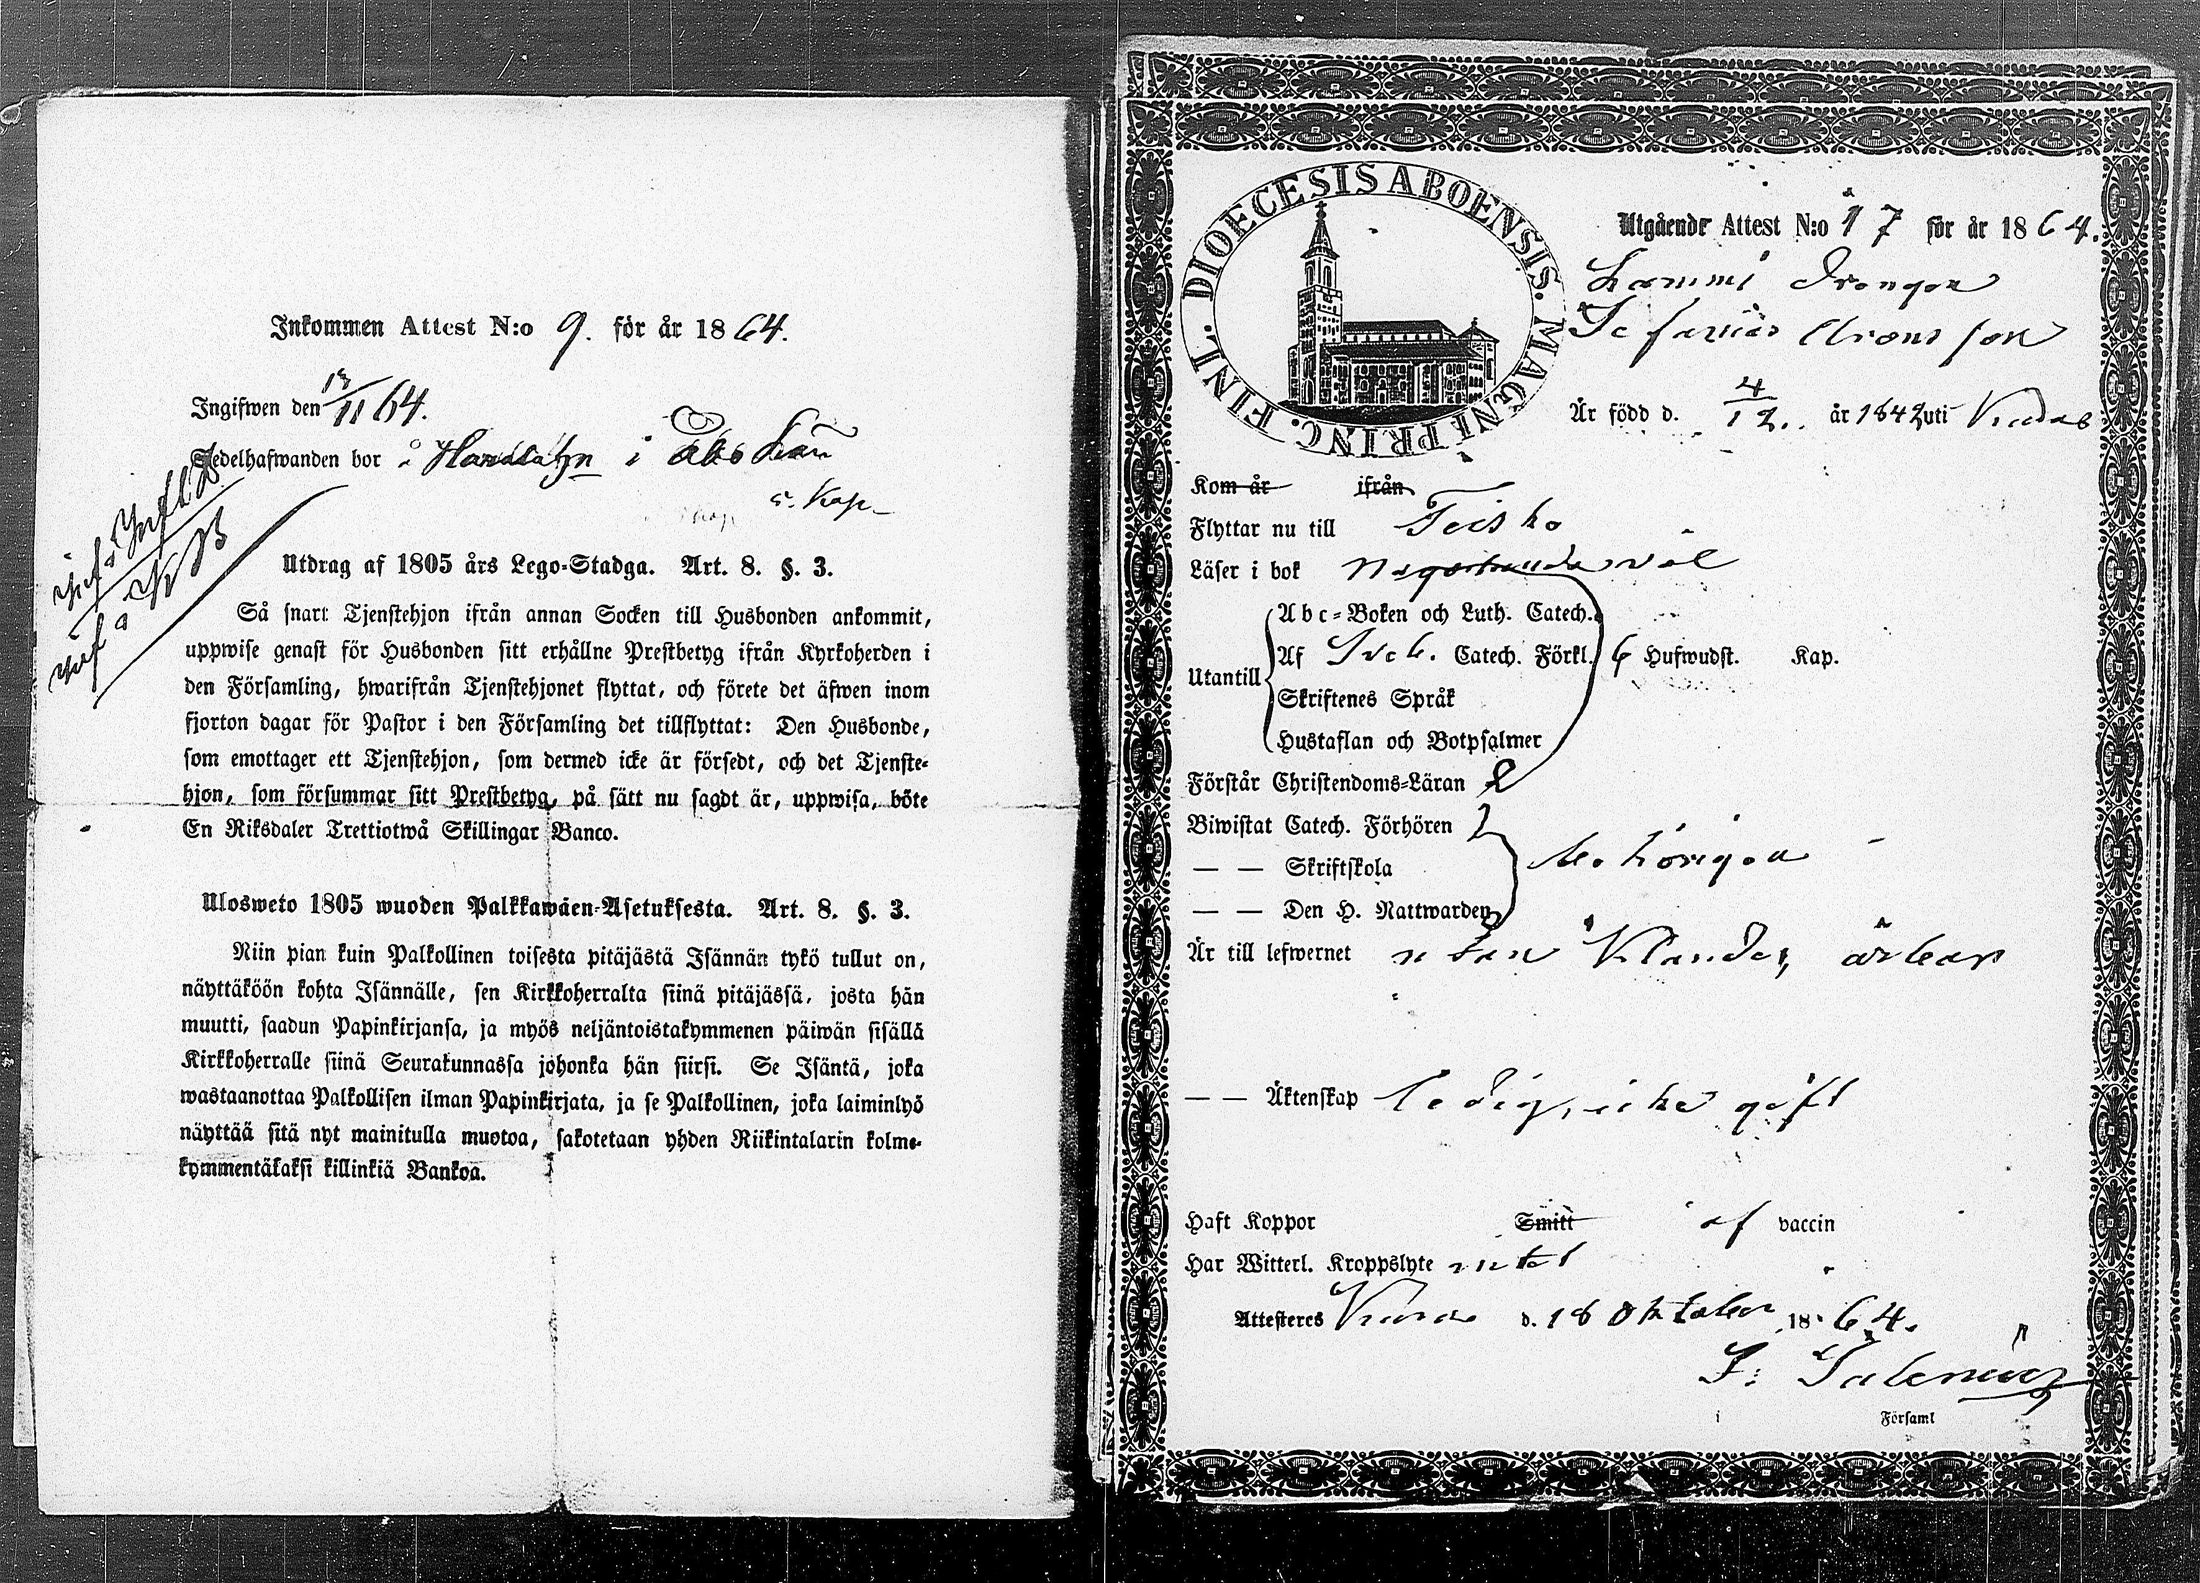 Inkommen Attest N:o 9. för år 1864.
Ingifwen den 13/11 64.
Sedelhafwanden bor å i
Utdrag af 1805 års Lego-Stadga. Art. 8. §. 3.
Så snart Tjenstehjon ifrån annan Socken till Husbonden ankommit,
uppwise genast för Husbonden sitt erhållne Prestbetyg ifrån Kyrkoherden i
den Församling, hwarifrån Tjenstehjonet flyttat, och förete det äfwen inom
fjorton dagar för Pastor i den Församling det tillflyttat: Den Husbonde,
som emottager ett Tjenstehjon, som dermed icke är försedt, och det Tjenste-
hjon, som försummar sitt Prestbetyg, på sätt nu sagdt är, uppwisa, böte
En Riksdaler Trettiotwå Skillingar Banco.
Ulosweto 1805 wuoden Palkkawäen-Asetuksesta. Art. 8. §. 3.
Niin pian kuin Palkollinen toisesta pitäjästä Isännän tykö tullut on,
näyttäköön kohta Isännälle, sen Kirkkoherralta siinä pitäjässä, josta hän
muutti, saadun Papinkirjansa, ja myös neljäntoistakymmenen päiwän sisällä
Kirkkoherralle siinä Seurakunnassa johonka hän siirsi. Se Isäntä, joka
wastaanottaa Palkollisen ilman Papinkirjata, ja se Palkollinen, joka laiminlyö
näyttää sitä nyt mainitulla muotoa, sakotetaan yhden Riikintalarin kolme-
kymmentäkaksi killinkiä Bankoa.
DIOECESIS ABOENSIS. MAGNI PRINC. FINL.
Utgående Attest N:o 17 för år 1864.
Lammi Drängen
Sefanias Aronsson
Är född d. 4/12. år 1842 uti
Kom år ifrån
Flyttar nu till Teisko
Läser i bok någorlunda väl
Utantill
Abc-Boken och Luth. Catech.
Af Sveb. Catech. Förkl. 6 Hufwudst. Kap.
Skriftenes Språk
Hustaflan och Botpsalmer
Förstår Christendoms-Läran
Biwistat Catech. Förhören
— — Skriftskola behörigen
— — Den H. Nattwarden
Är till lefwernet utan klander, ärbar
— — Äktenskap ledig, icke gift
Haft Koppor Smitt af vaccin
Har Witterl. Kroppslyte intet
Attesteres d. 18 Oktober 1864.
F: Salenius
Församl